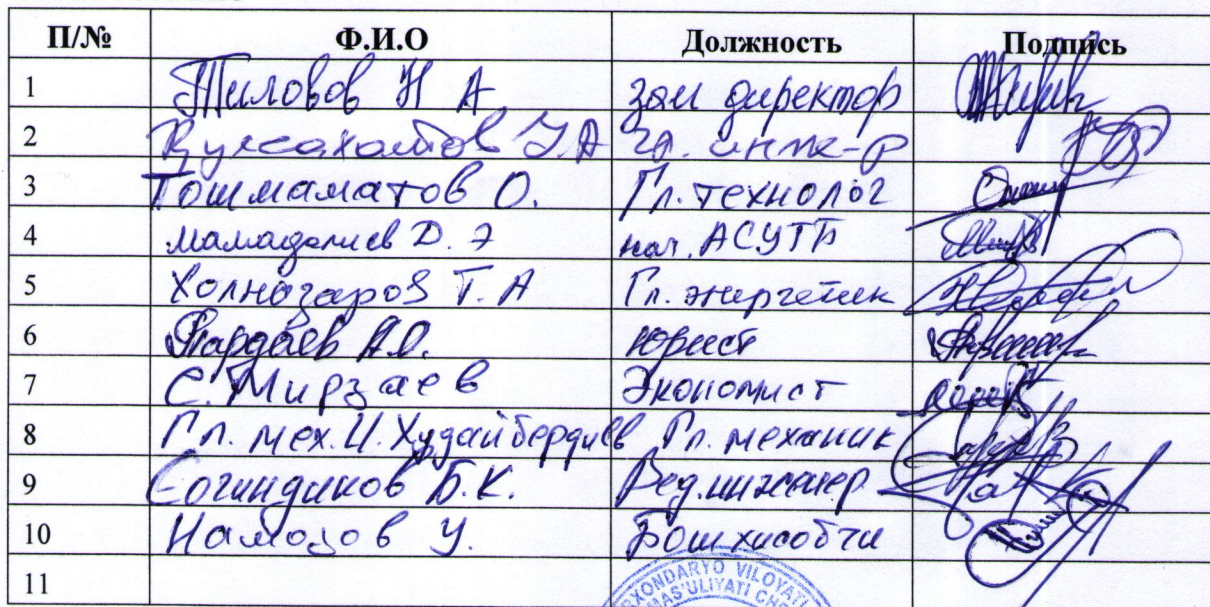 П/№ Ф.И.О Должность Подпись
1 Тиловов Н А зам директор
2 У.А гл. инже-р
3 Тошмаматов О. Гл. технолог
4 Мамадалиев Д. Э нач. АСУТП
5 Холназаров Т. А Гл. энергетик
6 А.О. юрист
7 С. Мирзаев Экономист
8 Гл. мех. И. Худайбердиев Гл. механик
9 Согиндиков Б.К. Вед. инженер
10 Намозов У. Бош хисобчи
11
RXONDARYO VILOYATI
MAS'ULIYATI